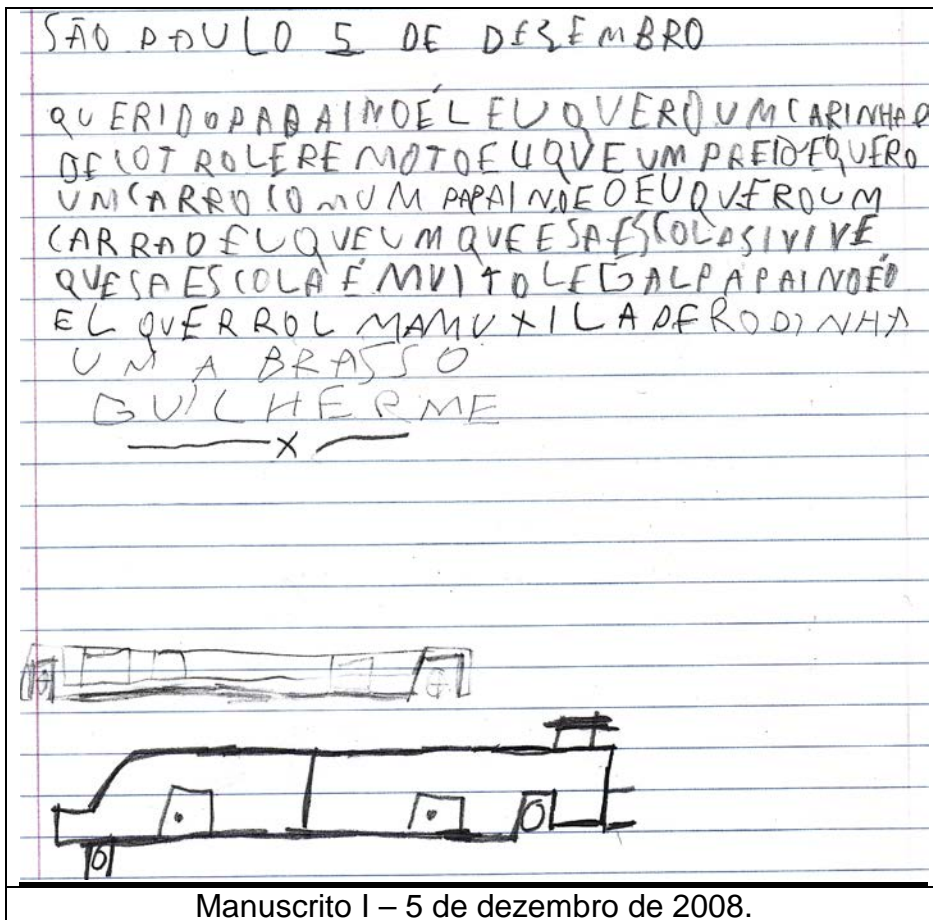 SÃO PAULO 5 DE DEZEMBRO
QUERIDO PAPAI NOÉL EU QUERO UM CARINHAO
DE COTROLERE MOTO EU QUE UM PREIO EQUERO
UM CARRO COM UM PAPAI NOE O EU QUERO UM
CARRAO EU QUE UM QUE ESA ESCOLA SIVIVE
QUESA ESCOLA É MUITO LEGAL PAPAI NOEO
EL QUERROL MAMUXILA DE RODINHA
UM ABRASSO
GUILHERME
X
Manuscrito I – 5 de dezembro de 2008.